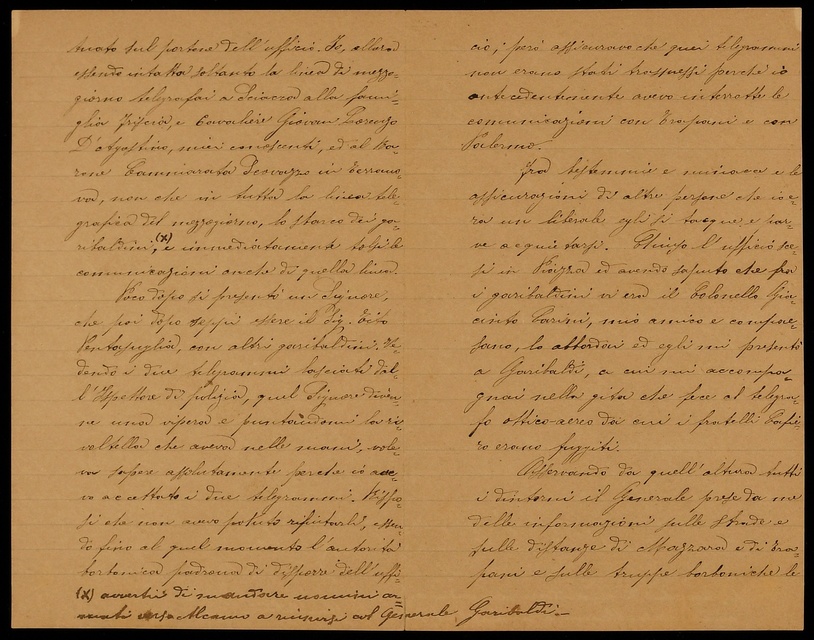 tuato sul portone dell'ufficio. Io, allora
essendo intatta soltanto la linea di mezzo=
giorno telegrafai a Sciacca alla fami=
glia Friscia, e Cavaliere Giovan Lorenzo
D'Agostino, miei conoscenti, ed al Ba=
rone Cammarata Scovazzo in Terrano=
va, non che in tutta la linea tele=
grafica del mezzogiorno, lo sbarco dei ga=
ribaldini, (x) e immediatamente tolsi le
comunicazioni anche di quella linea.
Poco dopo si presentò un Signore,
che poi dopo seppi essere il Sig. Tito
Pentasuglia, con altri garibaldini. Ve=
dendo i due telegrammi lasciati dal=
l'Ispettore di polizia, quel Signore diven
ne una vipera e puntandomi la ri=
voltella che aveva nelle mani, vole=
va sapere assolutamente perchè io ave=
vo accettato i due telegrammi. Rispo=
si che non avevo potuto rifiutarli, essen
do fino al quel momento l'autorità
borbonica padrona di disporre dell'uffi=
(x) avvertii di mandare uomini ar=
mati verso Alcamo a riunirsi col Generale Garibaldi.
cio; però assicuravo che quei telegrammi
non erano stati trasmessi perchè io
antecedentemente avevo interrotte le
comunicazioni con Trapani e con
Palermo.
Fra bestemmie e minacce e le
assicurazioni di altre persone che io e=
ra un liberale egli si tacque e par=
ve acquietarsi. Chiuso l'ufficio sce=
si in Piazza ed avendo saputo che fra
i garibaldini vi era il Colonello Gia=
cinto Carini, mio amico e compae=
sano, lo abbordai ed egli mi presentò
a Garibaldi, a cui mi accompa=
gnai nella gita che fece al telegra=
fo ottico-aereo da cui i fratelli Cafie=
ro erano fuggiti.
Osservando da quell'altura tutti
i dintorni il Generale prese da me
delle informazioni sulle strade e
sulle distanze di Mazzara e di Tra=
pani e sulle truppe borboniche le